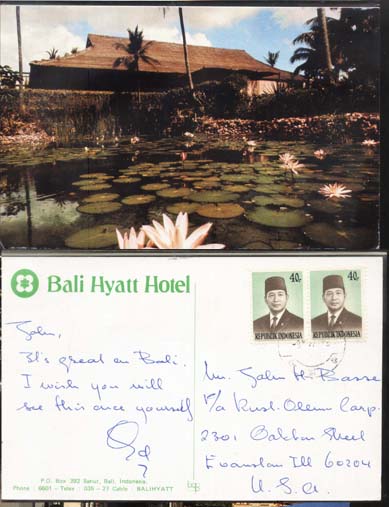 Bali Hyatt Hotel
40.- 40.-
REPUBLIK INDONESIA REPUBLIK INDONESIA
John,
It's great on Bali.
I wish you will
see this once yourself
Mr. John H. Basse
2301 Oakton Street
Evanston Ill 60204
U.S.A.
P.O. Box 392 Sanur, Bali, Indonesia.
Phone : 6601 - Telex : 035 - 27 Cable : BALIHYATT